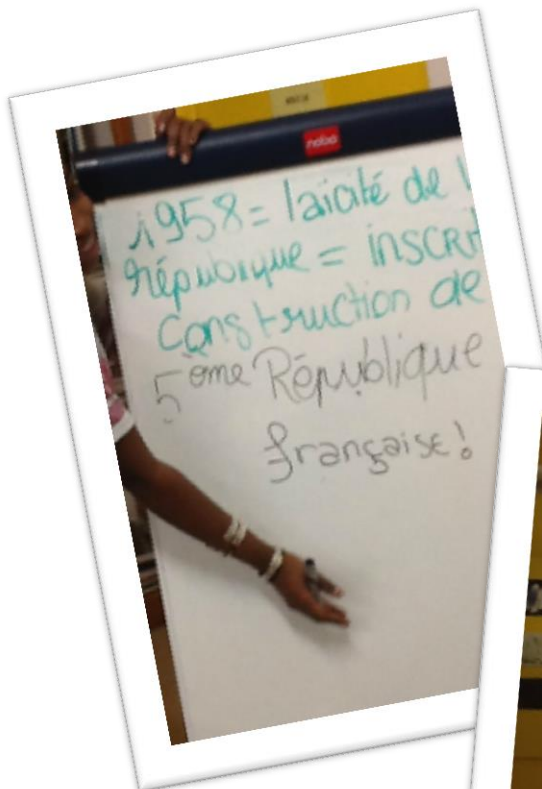 nobo
1958 = laïcité de
république = inscri
construction de
5ème République
française !